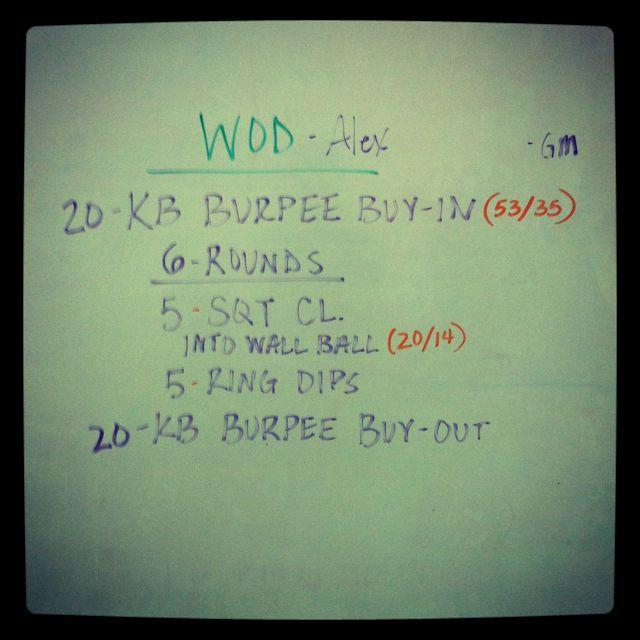 WOD - Alex - GM
20-KB BURPEE BUY-IN (53/35)
6-ROUNDS
5-SQT CL.
INTO WALL BALL (20/14)
5-RING DIPS
20-KB BURPEE BUY-OUT